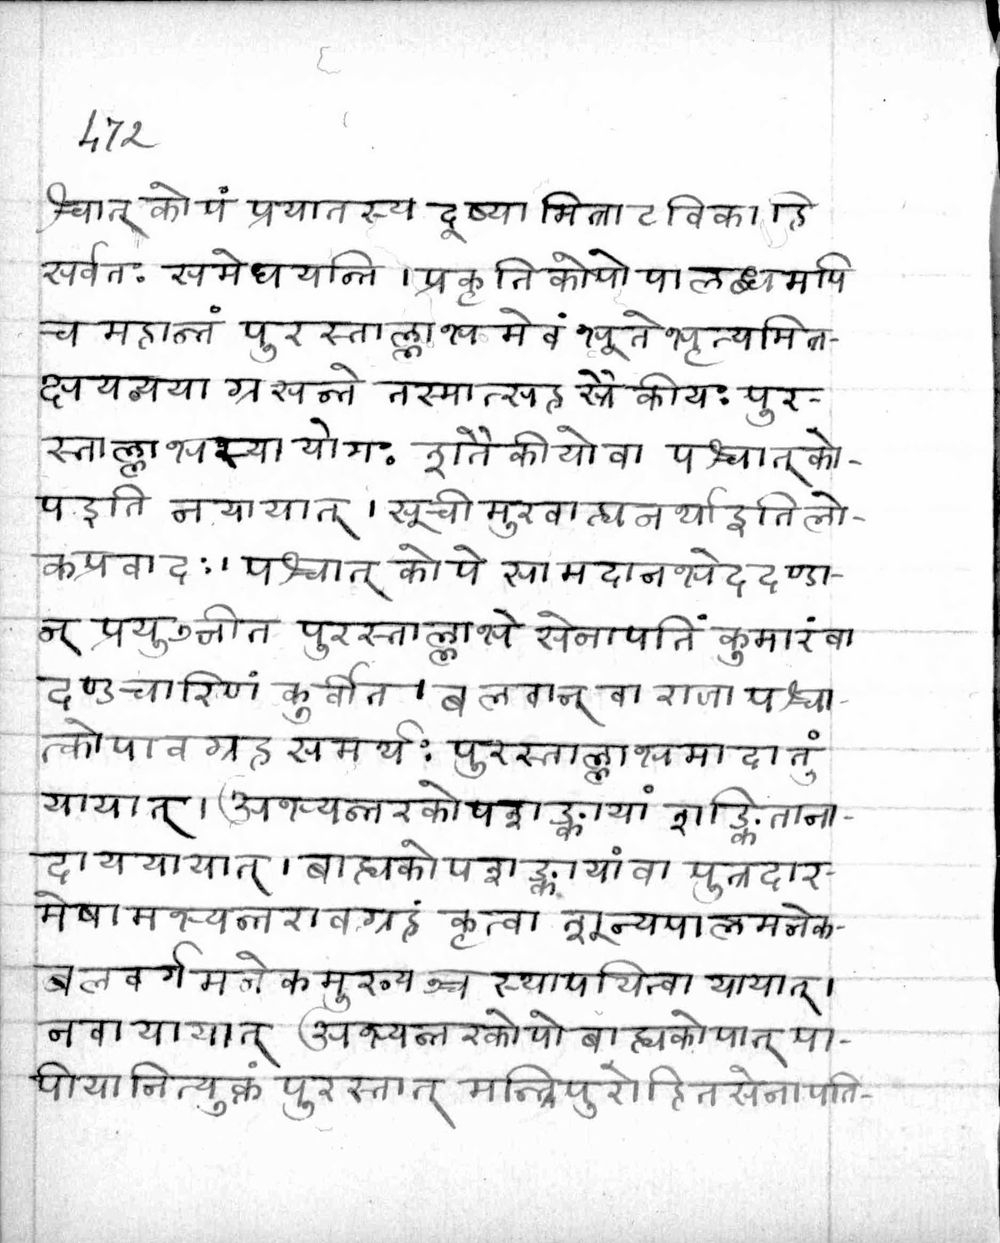 472
श्चात् कोपं प्रयातस्य दूष्यामित्राटविकाहि
सर्वतः समेधयन्ति । प्रकृतिकोपोपालब्धमपि
च महान्तं पुरस्ताल्लाभमेवंभूतेभृत्यमित्र-
क्षयव्यया ग्रसन्ते तस्मात्सहस्रैकीयः पुर-
स्ताल्लाभस्यायोगः शतैकीयोवा पश्चात्को-
प इति नयायात् । सूचीमुखाह्यनर्थाइतिलो-
कप्रवादः । पश्चात् कोपे सामदानभेददण्डा-
न् प्रयुञ्जीत पुरस्ताल्लाभे सेनापतिं कुमारंवा
दण्डचारिणं कुर्वीत । बलवान् वा राजा पश्चा-
त्कोपावग्रहसमर्थः पुरस्ताल्लाभमादातुं
यायात् । अभ्यन्तरकोपशङ्कायां शङ्किताना-
दाययायात् । बाह्यकोपशङ्कायांवा पुत्रदार-
मेषामभ्यन्तरावग्रहं कृत्वा शून्यपालमनेक-
बलवर्गमनेकमुख्यञ्च स्थापयित्वा यायात् ।
नवायायात् अभ्यन्तरकोपो बाह्यकोपात् पा-
पीयानित्युक्तं पुरस्तात् मन्त्रिपुरोहितसेनापति-